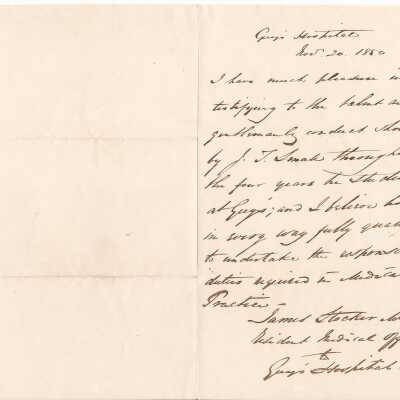 Guy's Hospital
Nov. 20. 1850
I have much pleasure in
testifying to the talent an
gentlemanly conduct show
by J. T. Smale through
the four years he studie
at Guy's; and I believe h
in every way fully qua
to undertake the responsi
duties required in Medica
Practice
James Stocker M
Resident Medical Off
to
Guy's Hospital